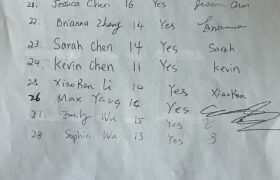 21. Jessica Chen 16 Yes
22. Brianna Zhang 14 Yes Brianna
23. Sarah Chen 14 Yes Sarah
24. Kevin Chen 11 Yes Kevin
25 XiaoRan Li 14 Yes XiaoRan
26 Max Yang 14 Yes
27. Emily Wu 15 Yes
28. Sophia Wu 13 Yes 3